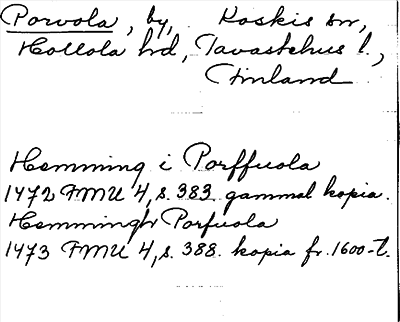 Porvola, by, Koskis sn,
Hollola hd, Tavastehus l.,
Finland
Hemming i Porffuola
1472 FMU 4, s. 383 gammal kopia.
Hemmingh Porfuola
1473 FMU 4, s. 388. kopia fr. 1600-t.